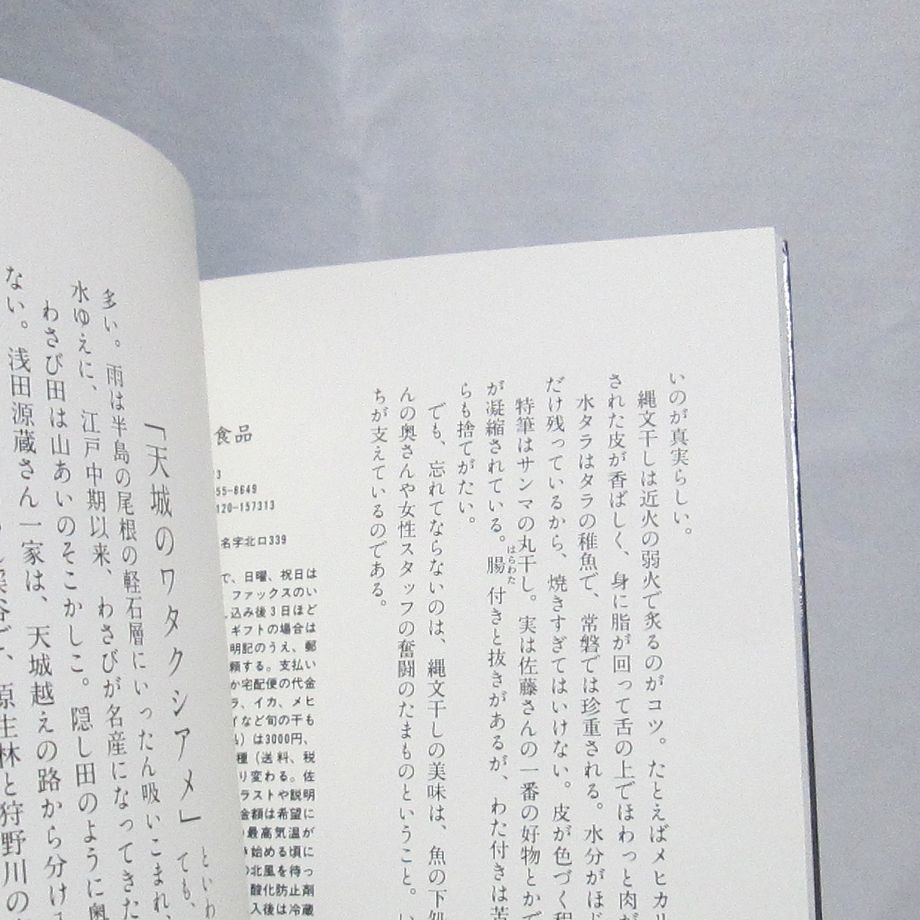 いのが真実らしい。
縄文干しは近火の弱火で炙るのがコツ。たとえばメヒカリ
された皮が香ばしく、身に脂が回って舌の上でほわっと肉が
水タラはタラの稚魚で、常磐では珍重される。水分がほど
だけ残っているから、焼きすぎてはいけない。皮が色づく程
特筆はサンマの丸干し。実は佐藤さんの一番の好物とかで
が凝縮されている。腸付きと抜きがあるが、わた付きは苦
はらわた
らも捨てがたい。
でも、忘れてならないのは、縄文干しの美味は、魚の下処
んの奥さんや女性スタッフの奮闘のたまものということ。い
ちが支えているのである。
食品
3
55-8649
120-157313
名字北口339
で、日曜、祝日は
ファックスのい
し込み後3日ほど
ギフトの場合は
明記のうえ、郵
頼する。支払い
か宅配便の代金
ラ、イカ、メヒ
イなど旬の干も
)は3000円、
種(送料、税
り変わる。佐
ラストや説明
金額は希望に
の最高気温が
き始める頃に
の北風を待っ
酸化防止剤
入後は冷蔵
といわ
ても、
「天城のワタクシアメ」
多い。雨は半島の尾根の軽石層にいったん吸いこまれ、
水ゆえに、江戸中期以来、わさびが名産になってきた
わさび田は山あいのそこかしこ。隠し田のように奥
ない。浅田源蔵さん一家は、天城越えの路から分け
深谷で、原生林と狩野川の